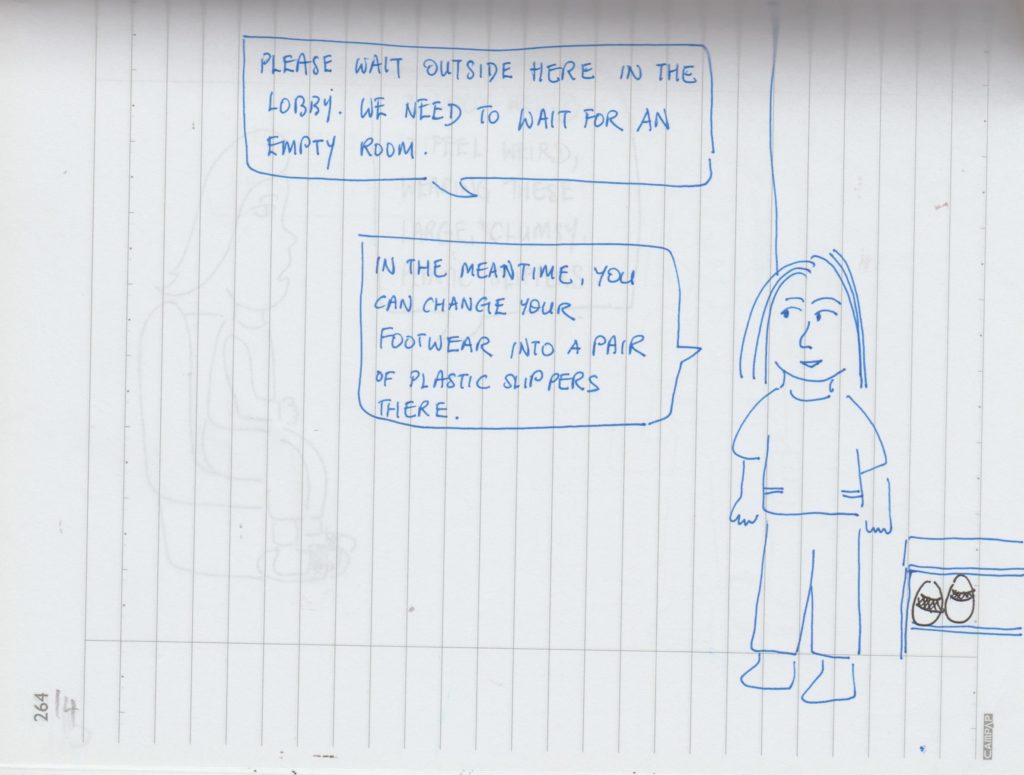 PLEASE WAIT OUTSIDE HERE IN THE
LOBBY. WE NEED TO WAIT FOR AN
EMPTY ROOM.
FEEL WEIRD,
THESE
LARGE, CLUMSY
IN THE MEANTIME, YOU
CAN CHANGE YOUR
FOOTWEAR INTO A PAIR
OF PLASTIC SLIPPERS
THERE.
264
14
CAMPAP